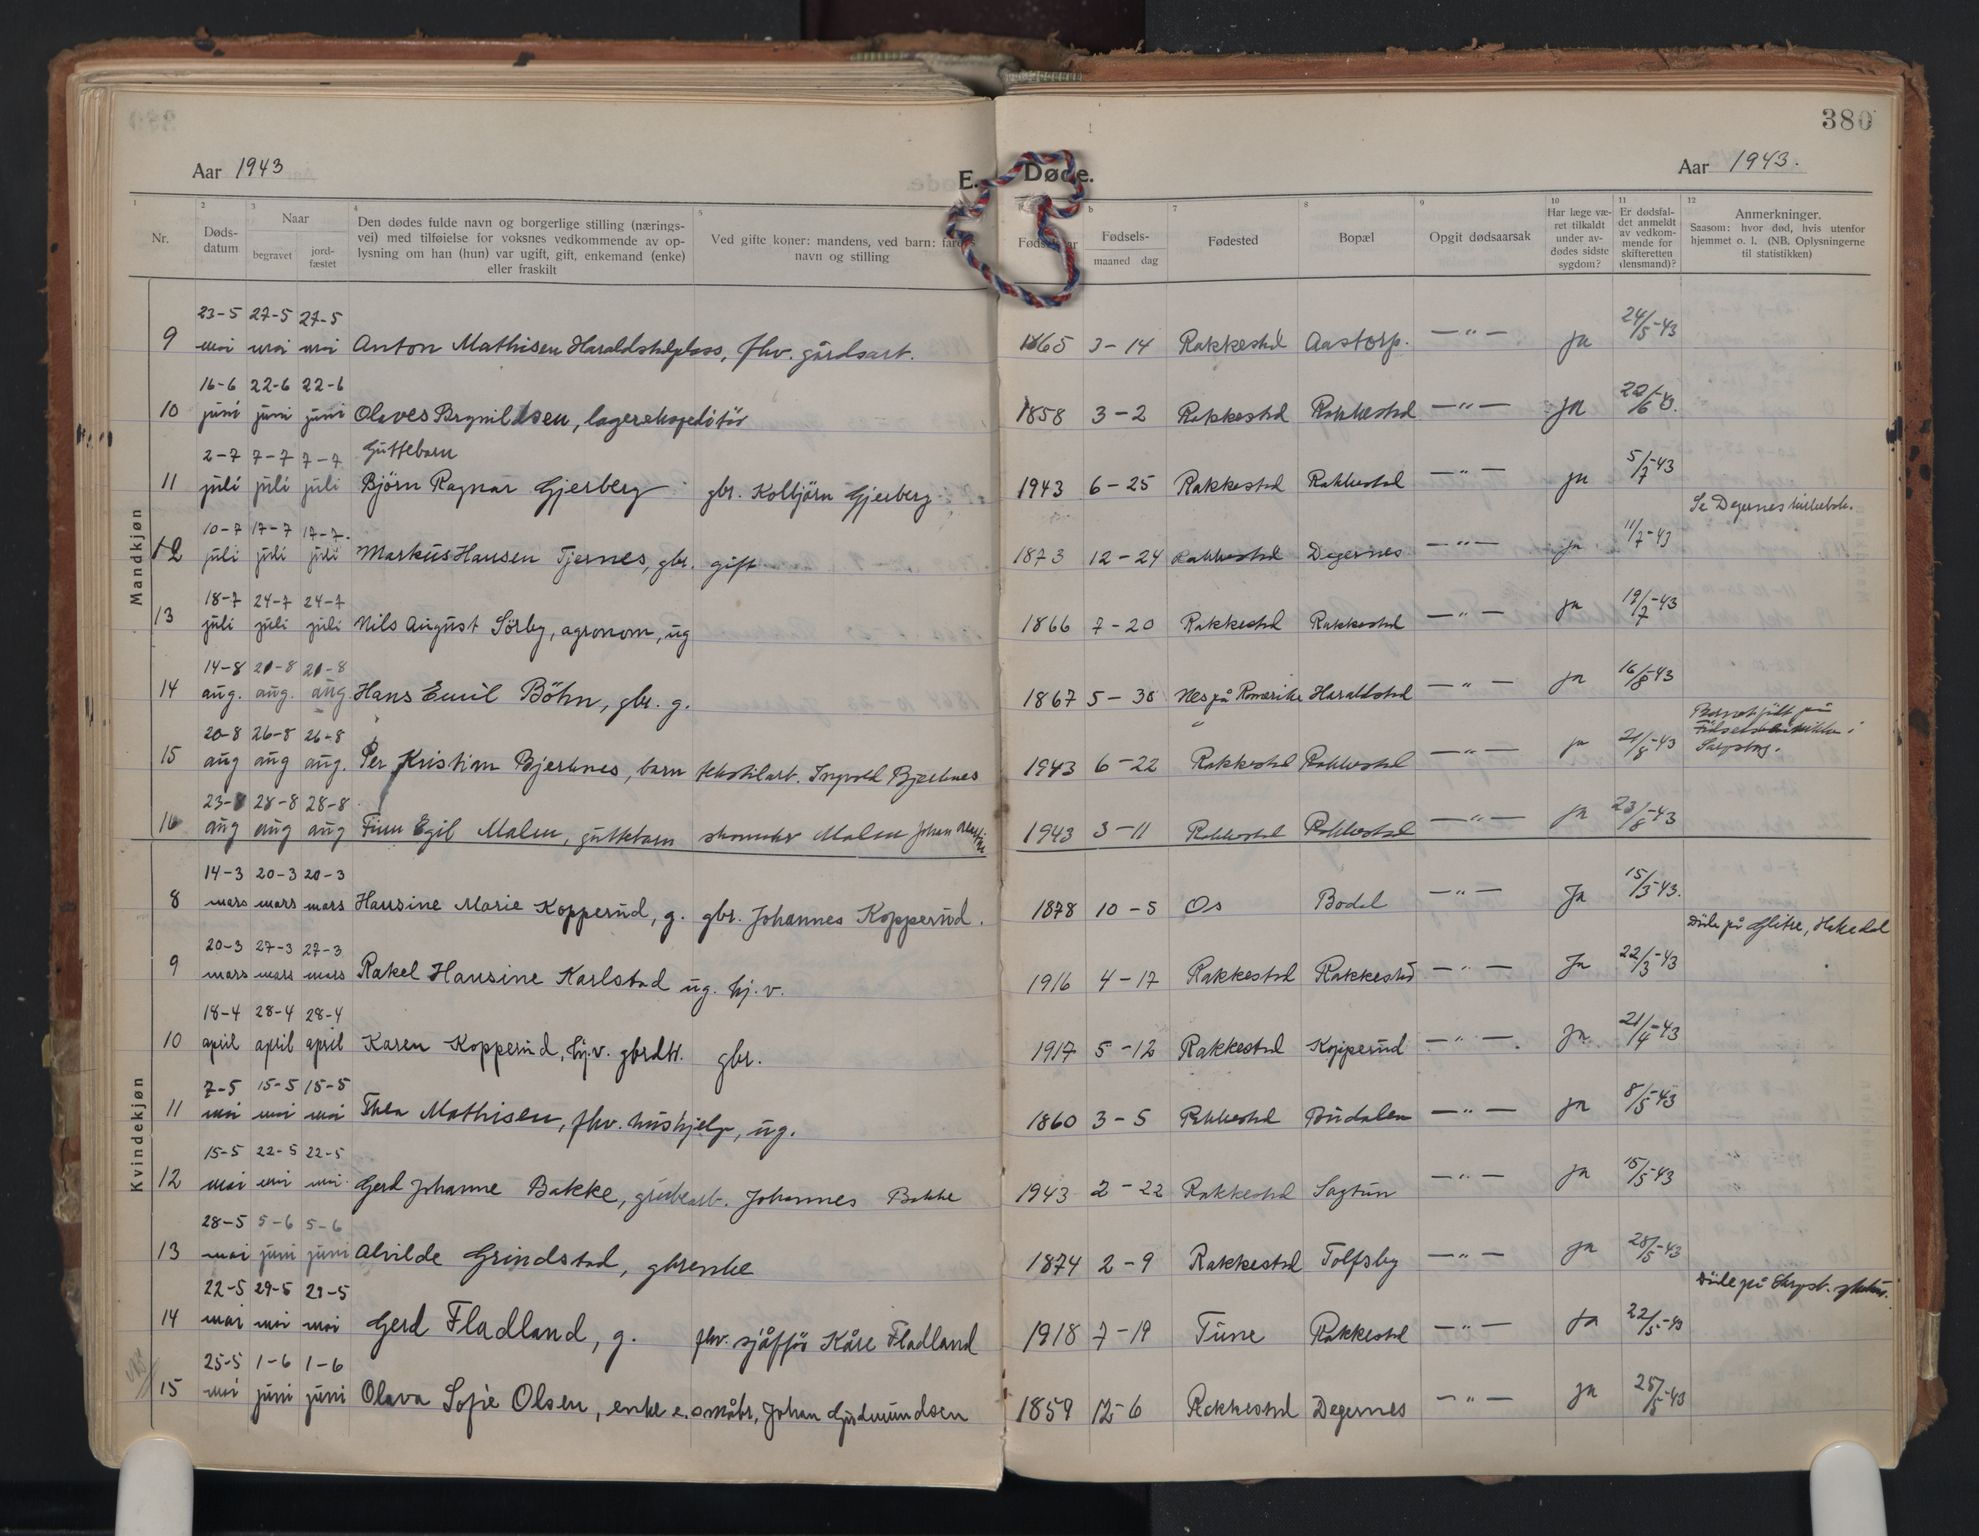 380
Aar 1943
E. Døde.
Aar 1943.
1 2 3 4 5 6 7 8 9 10 11 12
Nr.
Døds-
datum
Naar
begravet
jord-
fæstet
Den dødes fulde navn og borgerlige stilling (nærings-
vei) med tilføielse for voksnes vedkommende av op-
lysning om han (hun) var ugift, gift, enkemand (enke)
eller fraskilt
Ved gifte koner: mandens, ved barn: farens
navn og stilling
Fødselsaar
Fødsels-
maaned dag
Fødested
Bopæl
Opgit dødsaarsak
Har læge væ-
ret tilkaldt
under av-
dødes sidste
sygdom?
Er dødsfal-
det anmeldt
av vedkom-
mende for
skifteretten
(lensmand)?
Anmerkninger.
Saasom: hvor død, hvis utenfor
hjemmet o. l. (NB. Oplysningerne
til statistikken)
Mandkjøn
23-5 27-5 27-5 24/5-43
9 mai mai mai Anton Mathisen Haraldstadplass, fhv. gårdsarb. 1865 3-14 Rakkestad Aastorp. —"— ja
16-6 22-6 22-6 22/6 43.
10 juni juni juni Olaves Brynildsen, lagerekspeditör 1858 3-2 Rakkestad Rakkestad —"— ja
2-7 7-7 7-7 Guttebarn 5/7-43
11 juli juli juli Björn Ragnar Gjerberg gbr. Kolbjörn Gjerberg 1943 6-25 Rakkestad Rakkestad —"— ja
Se Degernes kirkebok.
10-7 17-7 17-7. 11/7-43
12 juli juli juli Markus Hansen Tjernes, gbr. gift 1873 12-24 Rakkestad Degernes —"— ja
18-7 24-7 24-7 19/7-43
13 juli juli juli Nils August Sörby, agronom, ug 1866 7-20 Rakkestad Rakkestad —"— ja
14-8 21-8 21-8 16/8-43
14 aug. aug. aug Hans Emil Böhn, gbr. g. 1867 5-30 Nes på Romerike Haraldstad —"— ja
20-8 26-8 26-8 21/8-43
15 aug aug aug. Per Kristian Bjerknes, barn tekstilarb. Ingvald Bjerknes 1943 6-22 Rakkestad Rakkestad —"— ja
Barnet født på
Fødselsklinikken i
Sarpsborg.
23-8 28-8 28-8 23/8-43
16 aug aug aug Finn Egil Malen, guttebarn skomaker Malen Johan 1943 3-11 Rakkestad Rakkestad —"— ja
Kvindekjøn
14-3 20-3 20-3 15/3-43.
8 mars mars mars Hansine Marie Kopperud, g. gbr. Johannes Kopperud. 1878 10-5 Os Bodal —"— Ja
Döde på Glitre, Hakedal
20-3 27-3 27-3 22/3-43
9 mars mars mars Rakel Hansine Karlstad ug. hj.v. 1916 4-17 Rakkestad Rakkestad —"— Ja
18-4 28-4 28-4 21/4-43
10 april april april Karen Kopperud, hj.v. gbrdtt. gbr. 1917 5-12 Rakkestad Kopperud —"—. Ja
7-5 15-5 15-5 8/5-43
11 mai mai mai Thea Mathisen, fhv. hushjelp, ug. 1860 3-5 Rakkestad Budalen —"— ja
15-5 22-5 22-5 15/5-43
12 mai mai mai. Gerd Johanne Bakke, grubearb. Johannes Bakke 1943 2-22 Rakkestad Sagtun —"— ja
28-5 5-6 5-6 28/5-43
13 mai juni juni Alvilde Grindstad, gbrenke 1874 2-9 Rakkestad Tolfsby —"— ja
22-5 29-5 29-5 Döde på Sarpsb. sykehus.
14 mai mai mai Gerd Fladland, g. fhv. sjåfför Kåre Fladland 1918 7-19 Tune Rakkestad —"— ja 22/5-43
25-5 1-6 1-6 25/5-43
15 mai juni juni Olava Sofie Olsen, enke e. småbr, Johan Gudmundsen 1859 12-6 Rakkestad Degernes —"— ja